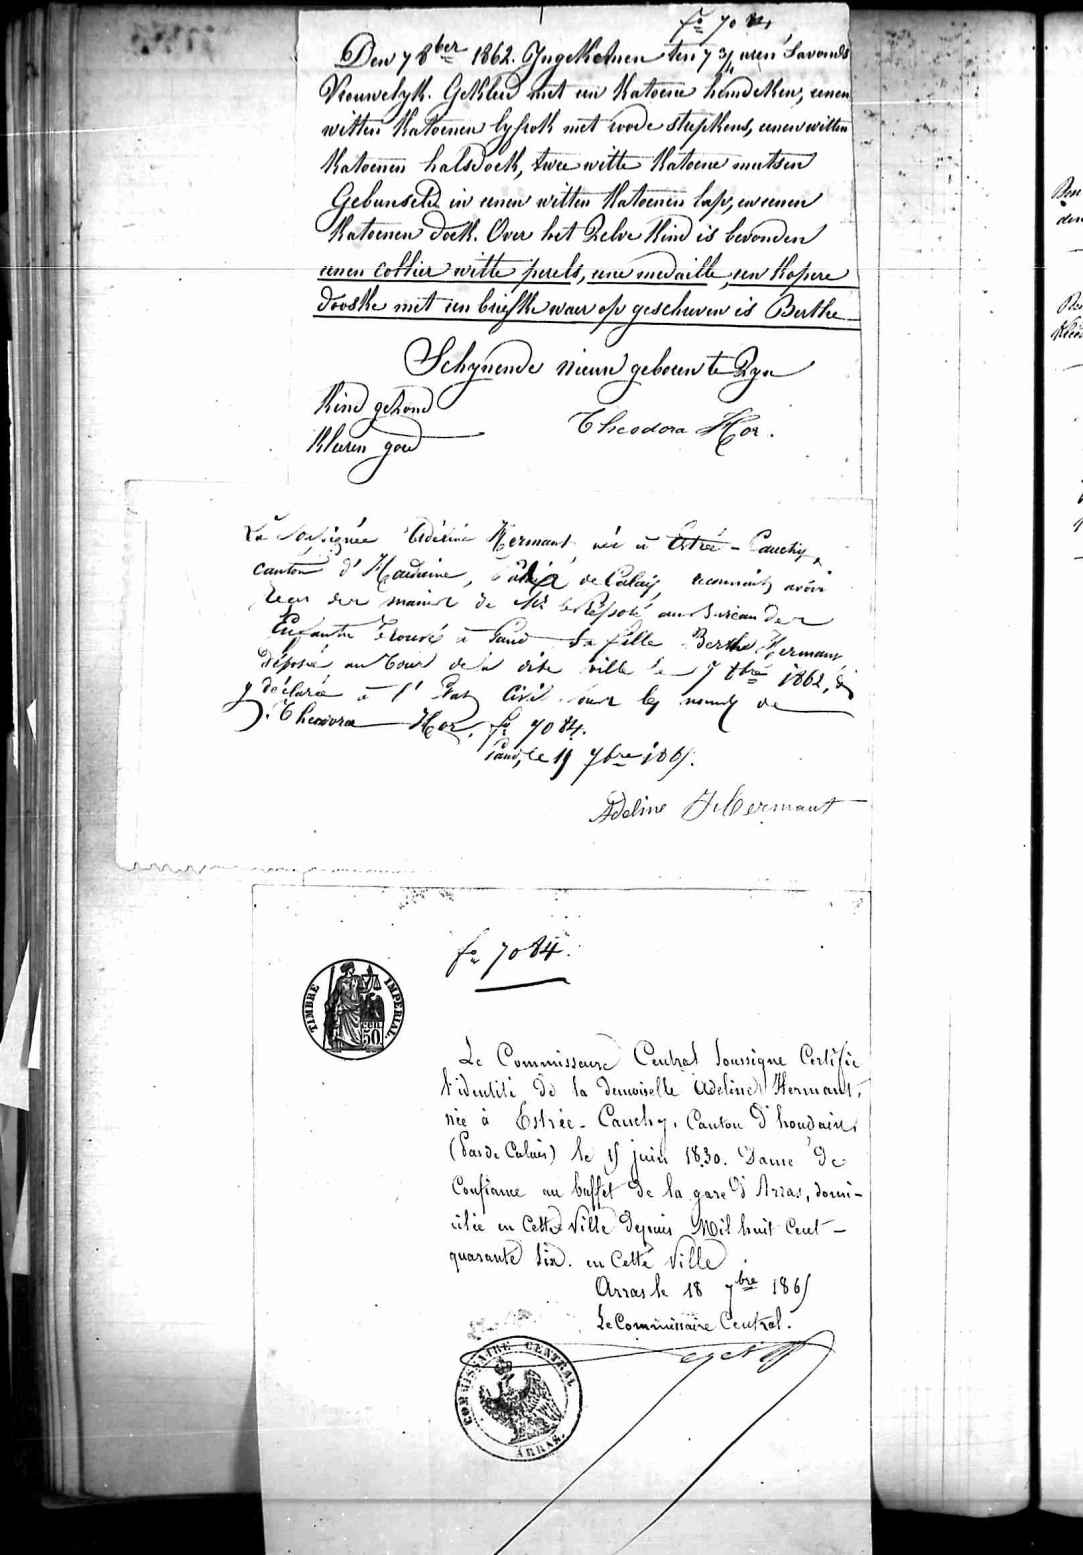 fo 7084
Den 7 8ber 1862. Ingekomen ten 7 3/4 uren s'avonds
Vrouwelyk. Gekleed met een Katoene hemdeken, eenen
witten Katoenen lyfrok met roode stipkens, eenen witten
Katoenen halsdoek, twee witte Katoene mutsen
Gebunseld in eenen witten Katoenen lap, en eenen
Katoenen doek. Over het Zelve Kind is bevonden
eenen collier witte perels, eene medaille, een Kopere
dooske met een briefke waer op geschreven is Berthe
Schynende nieuw geboren te Zyn
Kind gezond
Kleeren goed
Theodora Hor.
La Soussignée Adeline Hermant née à Estrée-Cauchy,
canton d'Houdaine, de Calais, reconnait avoir
reçu des mains de Mr le Préposé au Bureau des
Enfants Trouvés à Gand sa fille Berthe Hermant
déposée au Tour de la dite ville le 7 8bre 1862, &
y déclarée à l'Etat Civil sous les noms de
Theodora Hor. fo 7084.
Gand, le 19 7bre 1865.
Adeline Hermant
fo 7084.
TIMBRE IMPERIAL
50
Le Commissaire Central soussigné Certifie
l'identité de la demoiselle Adeline Hermant,
née à Estrée-Cauchy, Canton d'houdain,
(Pas de Calais) le 15 juin 1830. Dame de
Confiance au buffet de la gare d'Arras, domi-
ciliée en Cette Ville depuis Mil huit Cent-
quarante Six. en Cette Ville
Arras le 18 7bre 1865
Le Commissaire Central.
COMMISSAIRE CENTRAL
ARRAS.